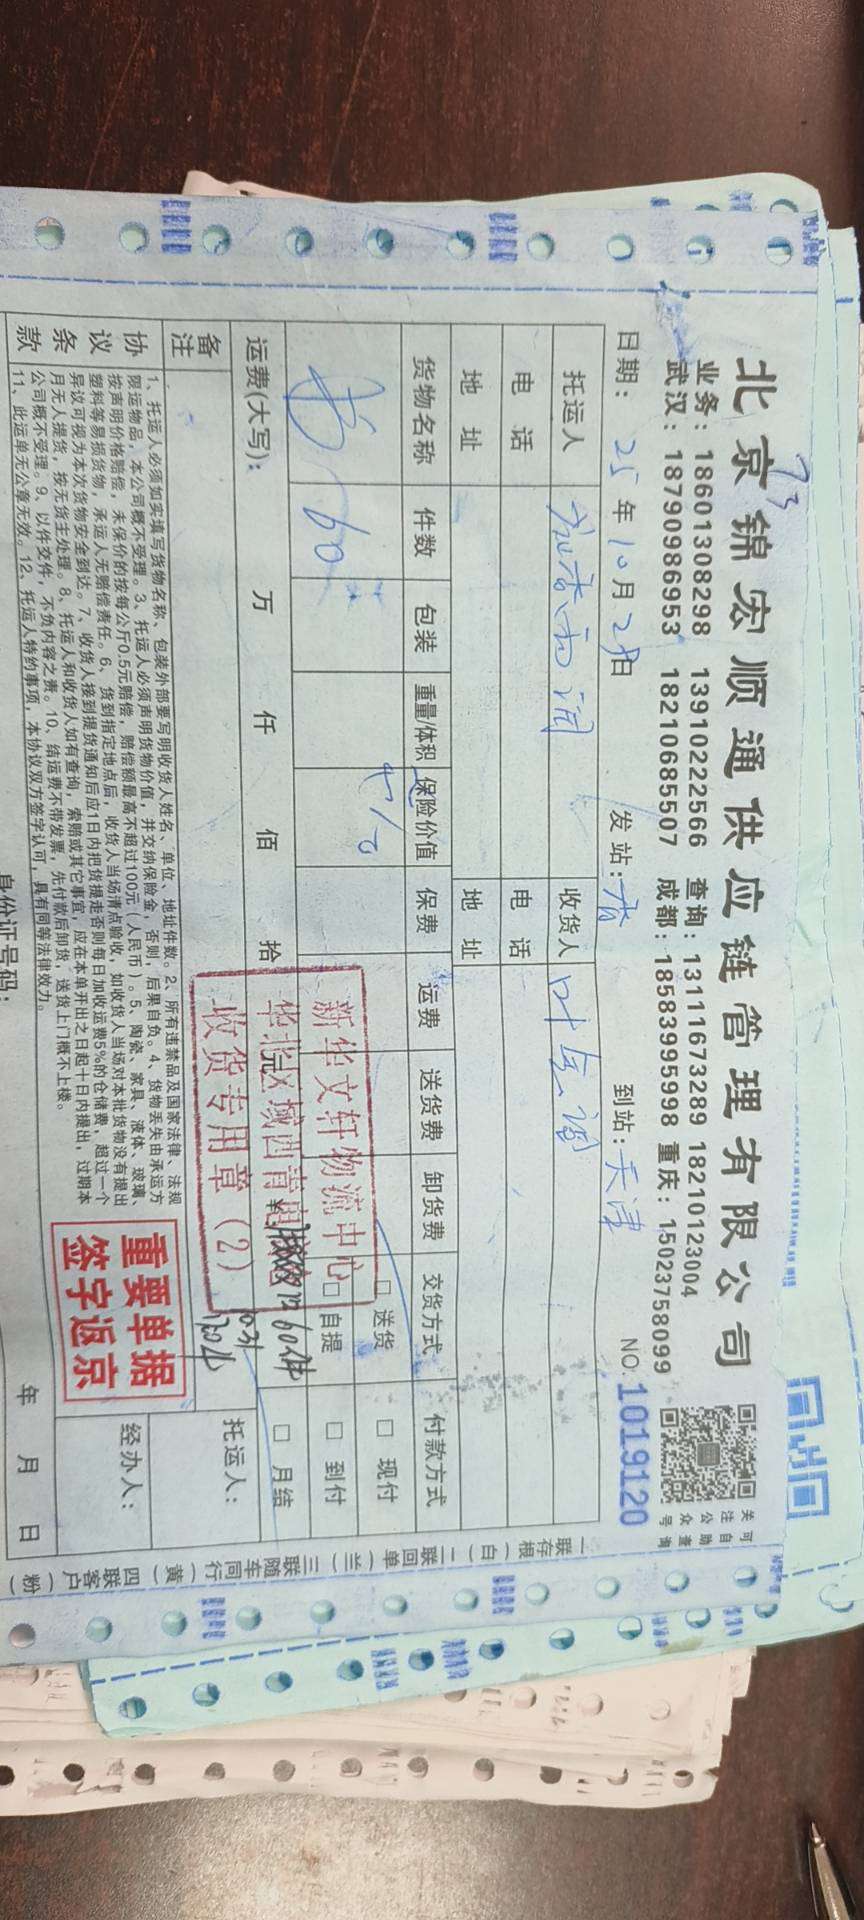 北京锦宏顺通供应链管理有限公司
业务：18601308298 13910222566 查询：13111673289 18210123004
武汉：18790986953 18210685507 成都：18583995998 重庆：15023758099
可自助查询
关注公众号
日期：25年10月28日 发站： 到站：天津 NO.1019120
托运人 收货人
电话 电话
地址 地址
货物名称 件数 包装 重量/体积 保险价值 保费 运费 送货费 卸货费 交货方式 付款方式
书 60
□送货 □现付
□自提 □到付
□月结
运费(大写)： 万 仟 佰 拾 元
新华文轩物流中心
华北区域西青
收货专用章（2）
备注
托运人：
协议条款
1、托运人必须如实填写货物名称、包装外部要写明收货人姓名、单位、地址件数。2、所有违禁品及国家法律、法规
限运物品，本公司概不受理。3、托运人必须声明货物价值，并交纳保险金，否则，后果自负。4、货物丢失由承运方
按声明价格赔偿，未保价的按每公斤0.5元赔偿，赔偿额最高不超过100元（人民币）。5、陶瓷、家具、液体、玻璃、
塑料等易损货物，承运人无赔偿责任。6、货到指定地点后，收货人当场清点验收，如收货人当场对本批货物没有提出
异议可视为本次货物安全到达。7、收货人接到提货通知后应1日内把货提走否则每日加收运费5%的仓储费，超过一个
月无人提货，按无货主处理。8、托运人和收货人如有查询，索赔或其它事宜，应在本单开出之日起十日内提出，过期本
公司概不受理。9、以件交件，不负内容之责。10、结运费不带发票，先付款后卸货，送货上门概不上楼。
11、此运单无公章无效。12、托运人特约事项，本协议双方签字认可，具有同等法律效力。
重要单据
签字返京
经办人：
年 月 日
身份证号码：
一联存根（白） 二联回单（兰） 三联随车同行（黄） 四联客户（粉）